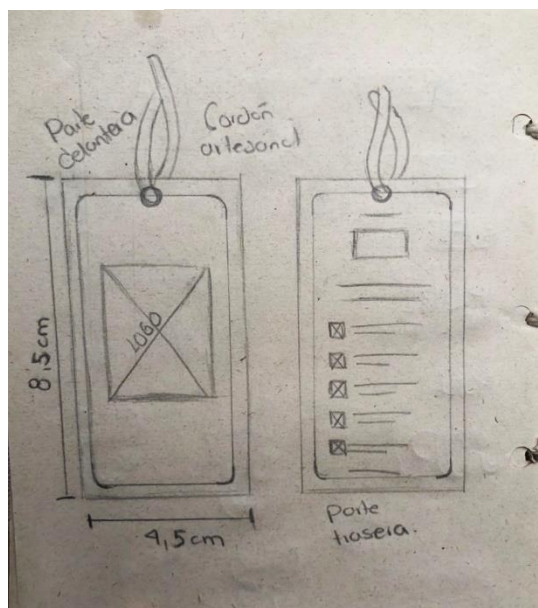 Parte
delantera
Cordón
artesanal
LOGO
8,5cm
4,5cm
parte
trasera.